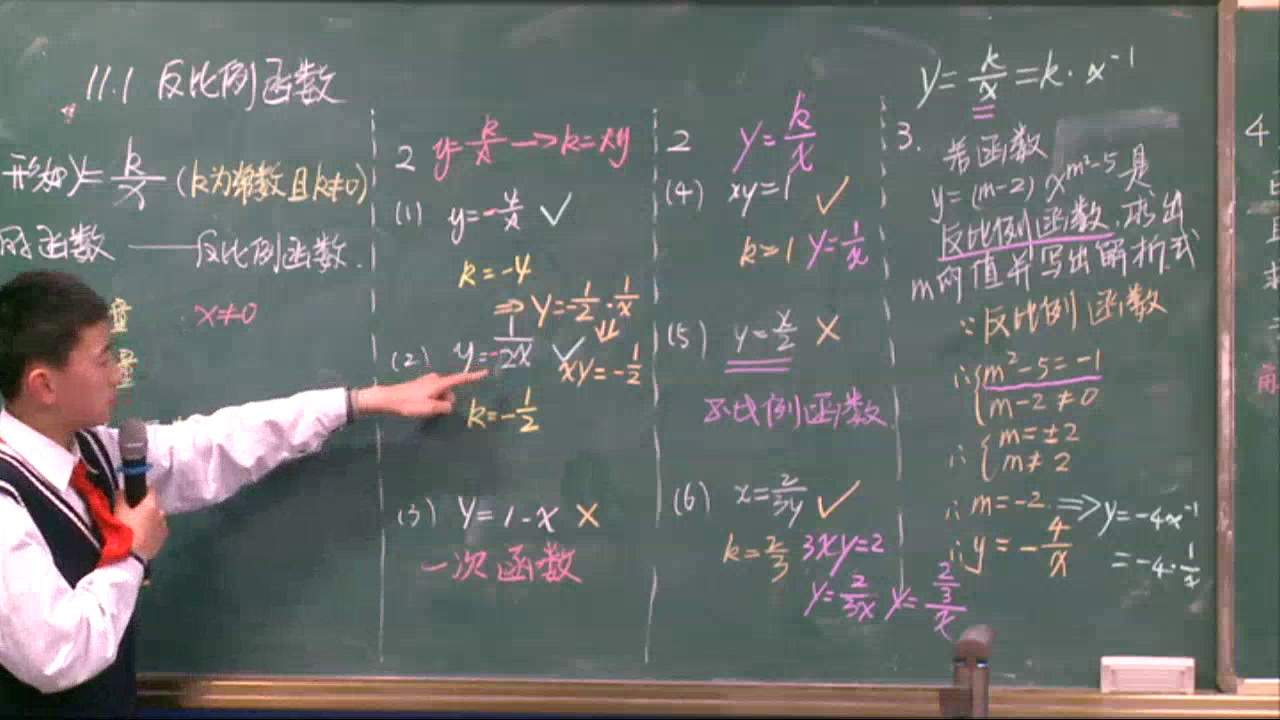 11.1 反比例函数
形如y=k/x (k为常数且k≠0)
的函数 —— 反比例函数.
量
x≠0
量
2 y=k/x → k=xy
(1) y=-4/x ✓
k=-4
⇒ y=-1/2·1/x
(2) y=-1/2x ✓ xy=-1/2
k=-1/2
(3) y=1-x ×
一次函数
2 y=k/x
(4) xy=1 ✓
k=1 y=1/x
(5) y=x/2 ×
正比例函数
(6) x=2/3y ✓
k=2/3 3xy=2
y=2/3x y=2/3/x
y=k/x=k·x⁻¹
3. 若函数
y=(m-2)x^m²-5是
反比例函数,求出
m的值并写出解析式
∵反比例函数
∴{m²-5=-1
m-2≠0
∴{m=±2
m≠2
∴m=-2 ⇒ y=-4x⁻¹
∴y=-4/x =-4·1/x
4